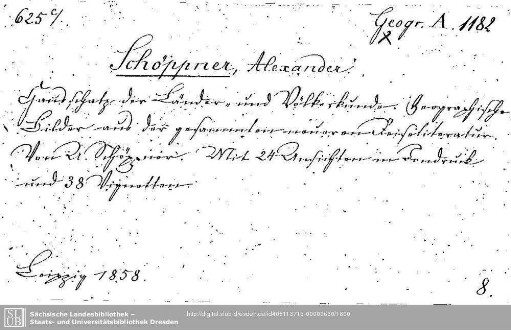 625 c/.
Geogr. A. 1182
Schöppner, Alexander.
Hausschatz der Länder- und Völkerkunde. Geographische
Bilder aus der gesammten neueren Reiseliteratur.
Von A. Schöppner. Mit 24 Ansichten in Tondruck
und 38 Vignetten.
Leipzig 1858.
8.
SLUB
Sächsische Landesbibliothek –
Staats- und Universitätsbibliothek Dresden